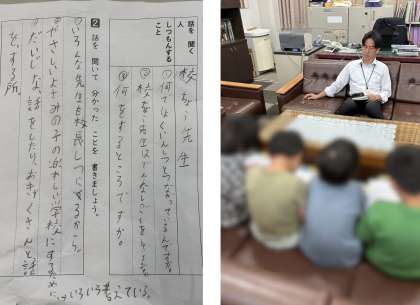 話を聞く人
校長先生
しつもんすること
①何でよくいんしつとつながっているんですか。
②校長先生はどんなしごとをしますか。
③何をするところですか。
2 話を聞いて分かったことを書きましょう。
①いろんな先生も校長しつにくるから。
②やさしい
の子の
楽しい学校にするために
いろいろ考えている。
③だいじな話をしたり、おきゃくさんと話
をする所